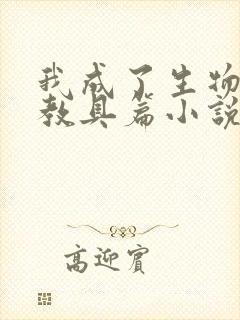 我成了生物
教具篇小說
高迎賓